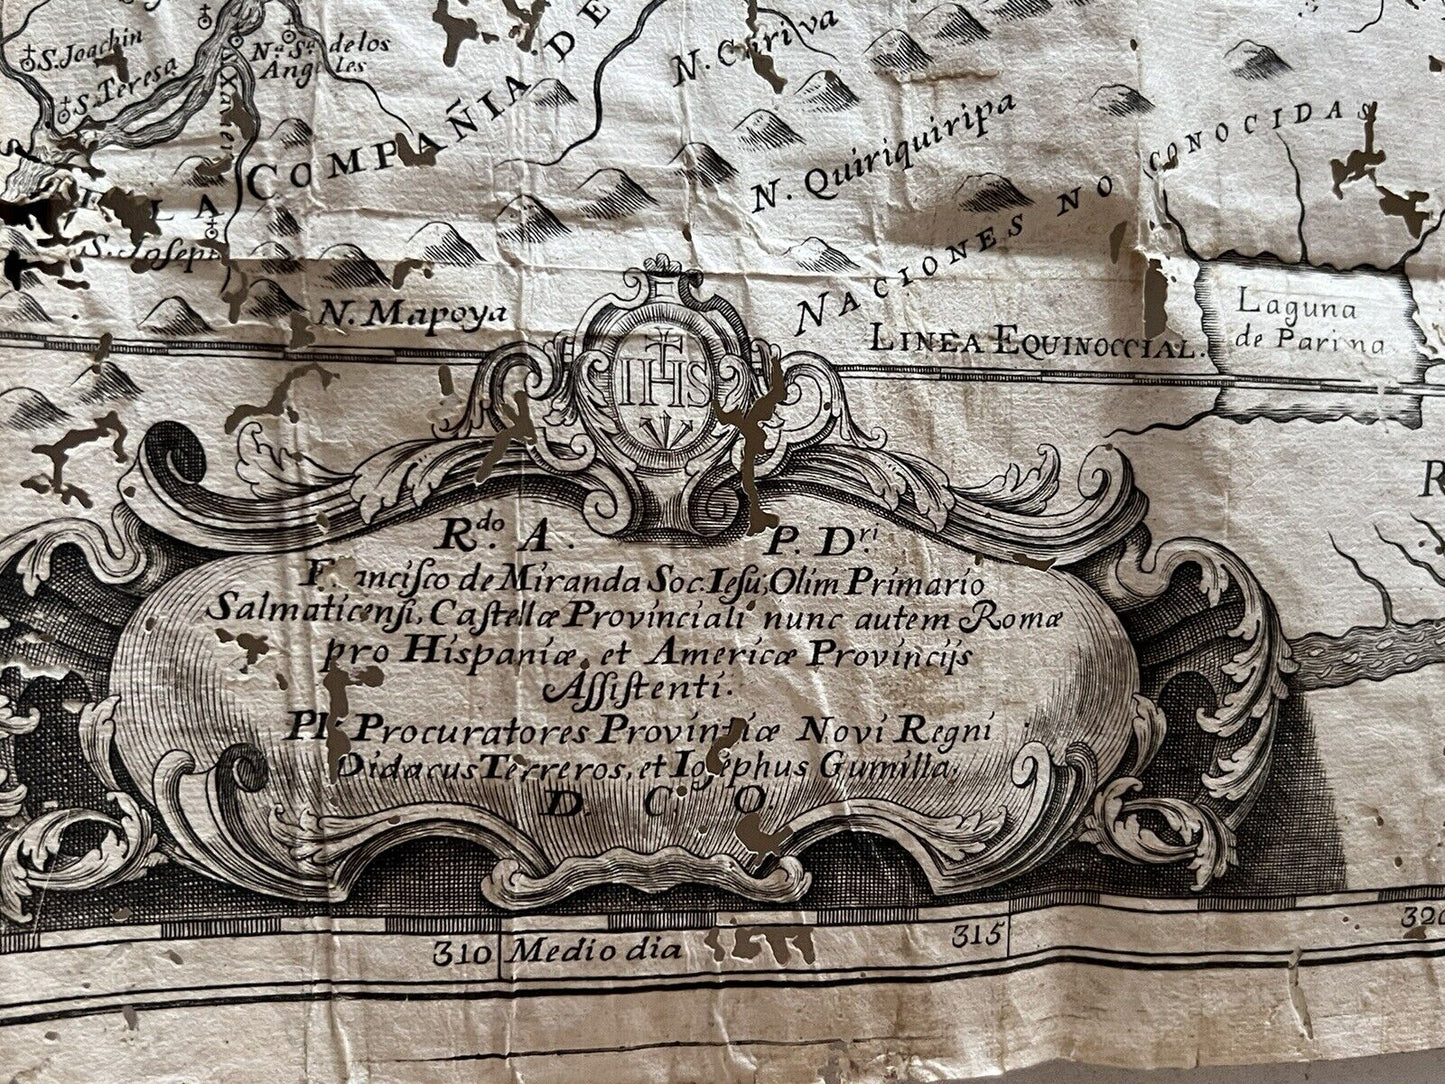 S. Joachin
S. Teresa
Nª Sª de los
Angeles
S. Xavier
COMPAÑIA DE
LA
S. Joseph
N. Cariva
N. Quiriquiripa
NACIONES NO CONOCIDAS
N. Mapoya
LINEA EQUINOCCIAL.
Laguna
de Parima
IHS
R
R.do A. P. D.ri
Francisco de Miranda Soc. Iesu, Olim Primario
Salmaticensi, Castellæ Provinciali nunc autem Romæ
pro Hispaniæ, et Americæ Provincijs
Assistenti.
PP. Procuratores Provintiæ Novi Regni
Didacus Terreros, et Iosephus Gumilla,
D. C. O.
310 Medio dia 315 320